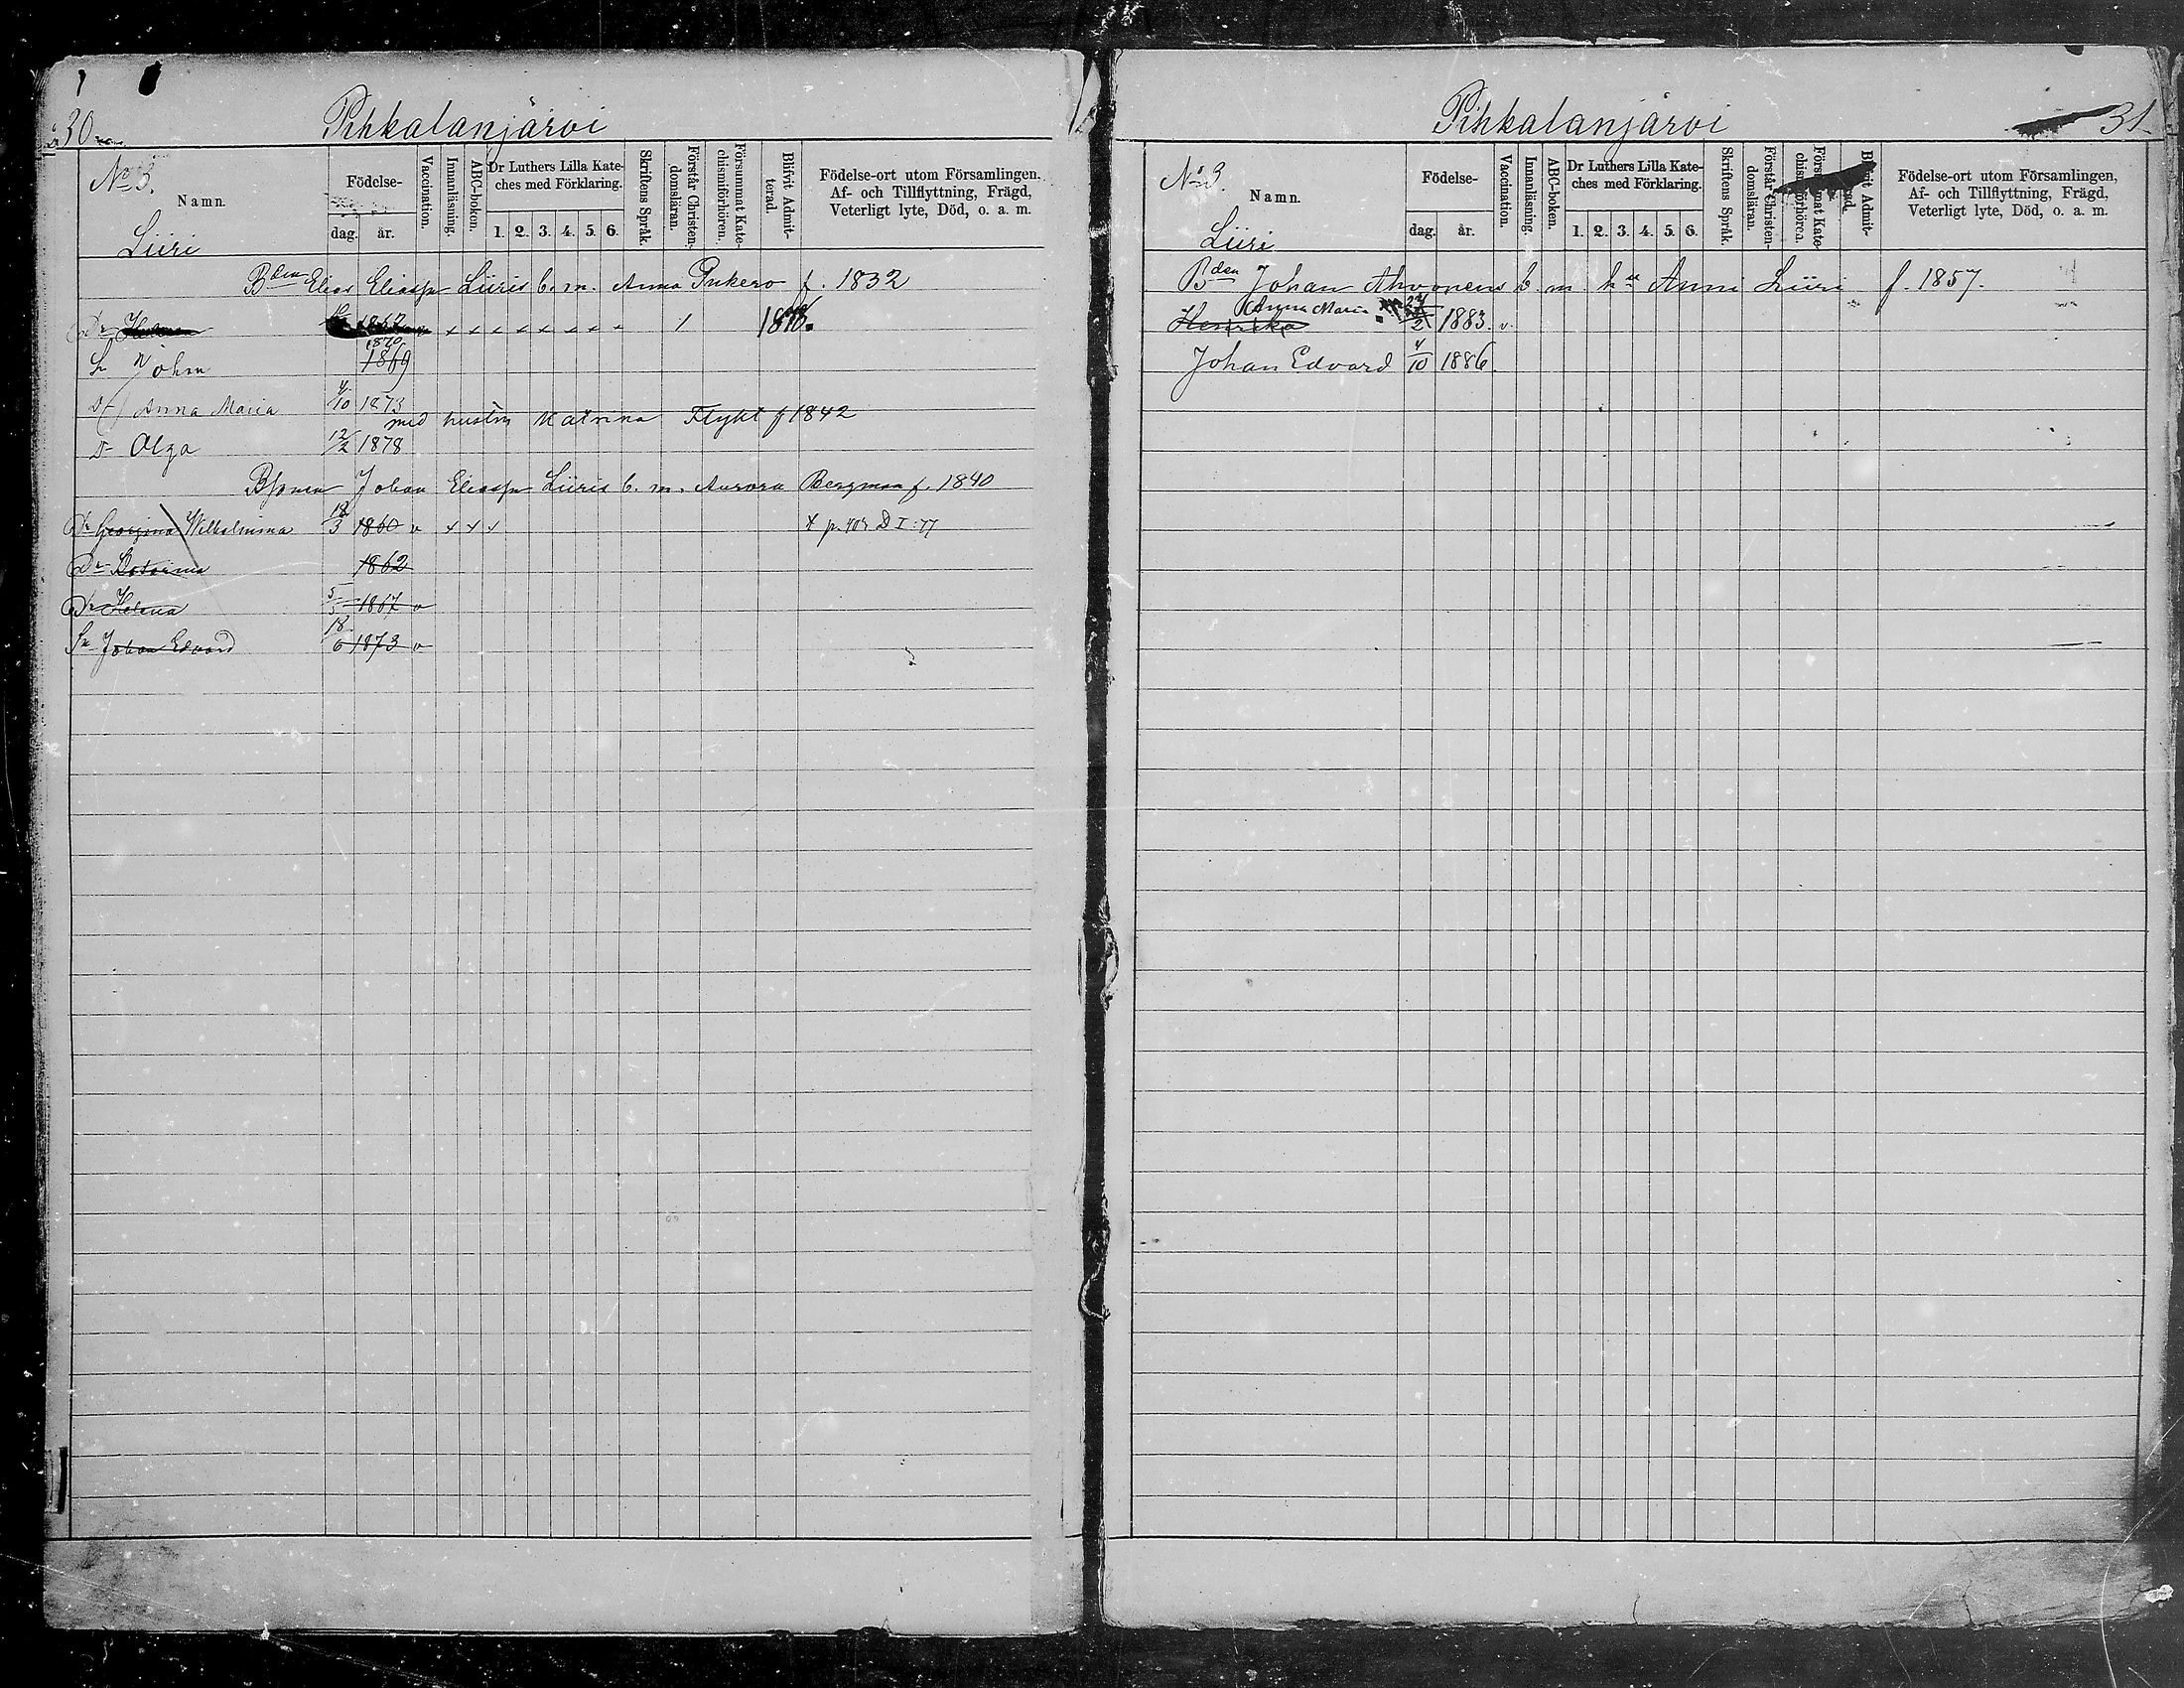 30
Pihkalanjärvi
No 3.
Namn.
Liiri
Födelse-
dag. år.
Vaccination.
Innanläsning.
ABC-boken.
Dr Luthers Lilla Kate-
ches med Förklaring.
1. 2. 3. 4. 5. 6.
Skriftens Språk.
Förstår Christen-
domsläran.
Försummat Kate-
chismiförhören.
Blifvit Admit-
terad.
Födelse-ort utom Församlingen.
Af- och Tillflyttning, Frägd,
Veterligt lyte, Död, o. a. m.
Bden Elias Eliasson Liiris b. m. Anna Pukero f. 1832
Dr 1867 v x x x x x x x x 1
1870
Sn Johan 1869
Dr Anna Maria 4/10 1873
med hustru Katrina Flykt f 1842
Dr Olga 12/2 1878
Johan Eliasson Liiris b. m. Aurora Bergman f. 1840
Dr Georgina Wilhelmina 18/3 1860 v x x x p. 408 D I:77
Dr Katarina 1862
Dr Helena 5/5 1867 v
Sn Johan Edvard 18/6 1873 v
Pihkalanjärvi
31.
No 3.
Namn.
Liiri
Födelse-
dag. år.
Vaccination.
Innanläsning.
ABC-boken.
Dr Luthers Lilla Kate-
ches med Förklaring.
1. 2. 3. 4. 5. 6.
Skriftens Språk.
Förstår Christen-
domsläran.
Försummat Kate-
chismiförhören.
Blifvit Admit-
terad.
Födelse-ort utom Församlingen,
Af- och Tillflyttning, Frägd,
Veterligt lyte, Död, o. a. m.
Bden Johan Ahvonens b. m. hu Anni Liiri f. 1857.
Anna Maria
Henrika 1883. v.
Johan Edvard 4/10 1886.